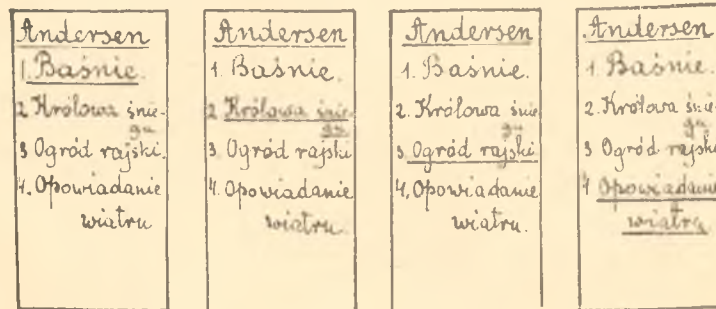 Andersen
1. Baśnie.
2 Królowa śnie-
gu
3 Ogród rajski.
4. Opowiadanie
wiatru
Andersen
1. Baśnie.
2 Królowa śnie-
gu.
3. Ogród rajski
4. Opowiadanie
wiatru.
Andersen
1. Baśnie.
2. Królowa śnie-
gu
3. Ogród rajski
4. Opowiadanie
wiatru.
Andersen
1. Baśnie.
2. Królowa śnie-
gu
3 Ogród rajski
4 Opowiadanie
wiatru